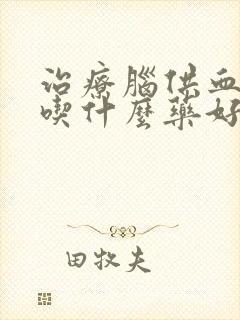 治療腦供血
喫什麼藥好
田牧夫